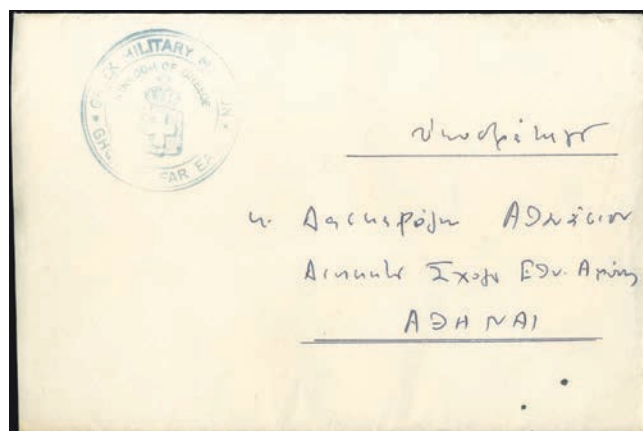 GREEK MILITARY
KINGDOM OF GREECE
GHQ FAR EA
Ὑποστράτηγον
κ. Δασκαρόλην Αθανάσιον
Διοικητήν Σχολής Εθν. Αμύνης
ΑΘΗΝΑΙ